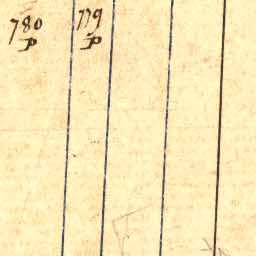 780 779
P P